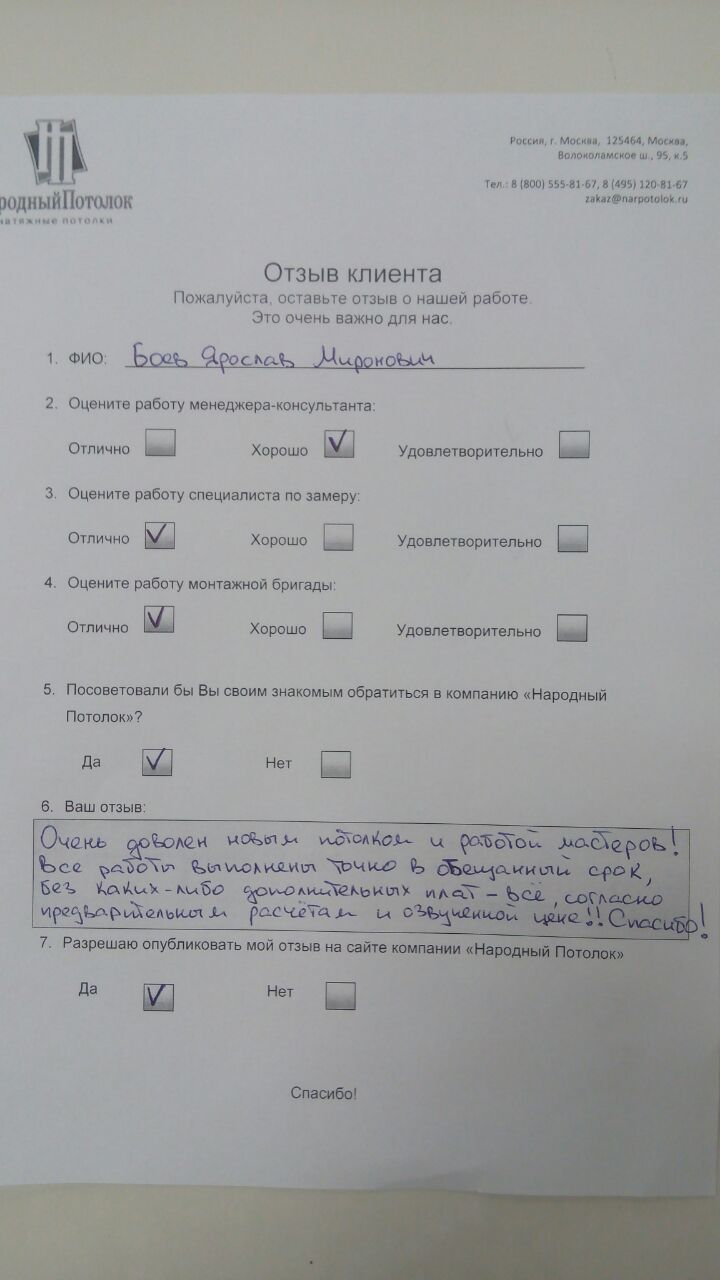 родныйПотолок
натяжные потолки
Россия, г. Москва, 125464, Москва,
Волоколамское ш., 95, к.5
Тел.: 8 (800) 555-81-67, 8 (495) 120-81-67
zakaz@narpotolok.ru
Отзыв клиента
Пожалуйста, оставьте отзыв о нашей работе.
Это очень важно для нас.
1. ФИО: Боев Ярослав Миронович
2. Оцените работу менеджера-консультанта:
Отлично Хорошо Удовлетворительно
3. Оцените работу специалиста по замеру:
Отлично Хорошо Удовлетворительно
4. Оцените работу монтажной бригады:
Отлично Хорошо Удовлетворительно
5. Посоветовали бы Вы своим знакомым обратиться в компанию «Народный
Потолок»?
Да Нет
6. Ваш отзыв:
Очень доволен новым потолком и работой мастеров!
Все работы выполнены точно в обещанный срок,
без каких-либо дополнительных плат – всё, согласно
предварительным расчётам и озвученной цене!! Спасибо!
7. Разрешаю опубликовать мой отзыв на сайте компании «Народный Потолок»
Да Нет
Спасибо!